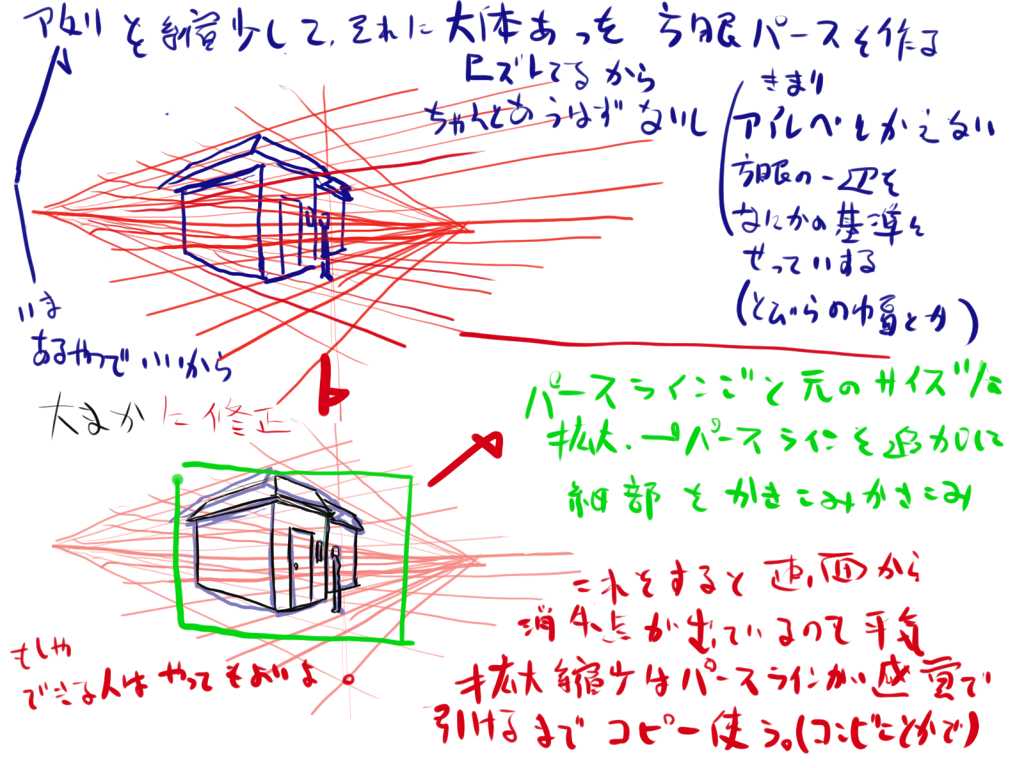 アタリを縮少して、それに大体あった方眼パースを作る
ズレてるから
ちゃんとあうはずないし
きまり
アイレベルかえない
方眼の一辺を
なにかの基準に
せっていする
(とびらの巾とか)
いま
あるやつでいいから
大まかに修正
パースラインごと元のサイズに
拡大.→パースラインを追加に
細部をかきこみかきこみ
これをすると画面から
消失点が出ているのも平気
もしや
できる人はやってもよいよ。
拡大縮少はパースラインが感覚で
引けるまでコピー使う。(コンビニとかで)